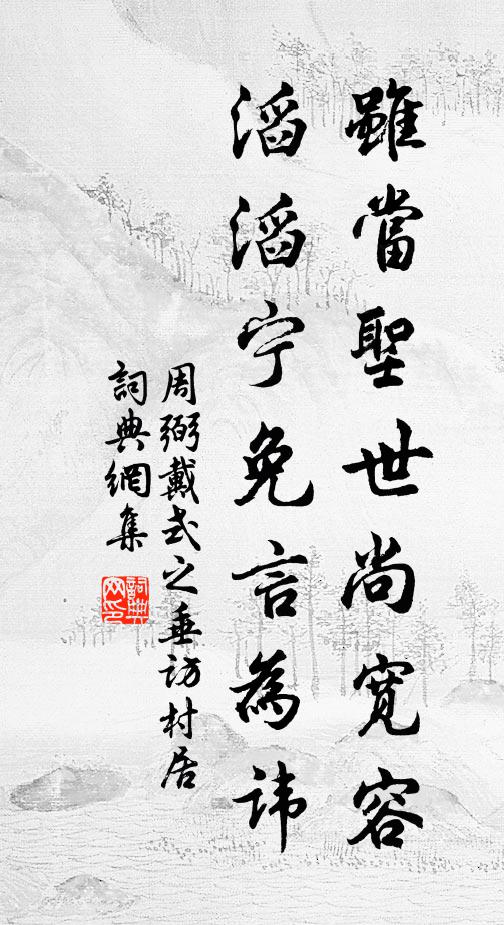 雖當聖世尚寬容
滔滔宁免言為讳
周弼戴式之垂访村居
詞典網集